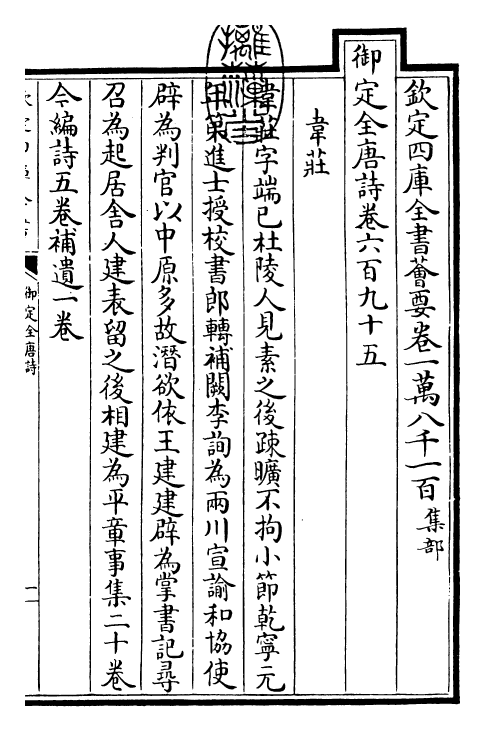 欽定四庫全書薈要卷一萬八千一百集部
御定全唐詩卷六百九十五
韋莊
韋莊字端已杜陵人見素之後疎曠不拘小節乾寧元
年第進士授校書郎轉補闕李詢為兩川宣諭和協使
辟為判官以中原多故潛欲依王建建辟為掌書記尋
召為起居舍人建表留之後相建為平章事集二十卷
今編詩五卷補遺一卷
御定全唐詩
一